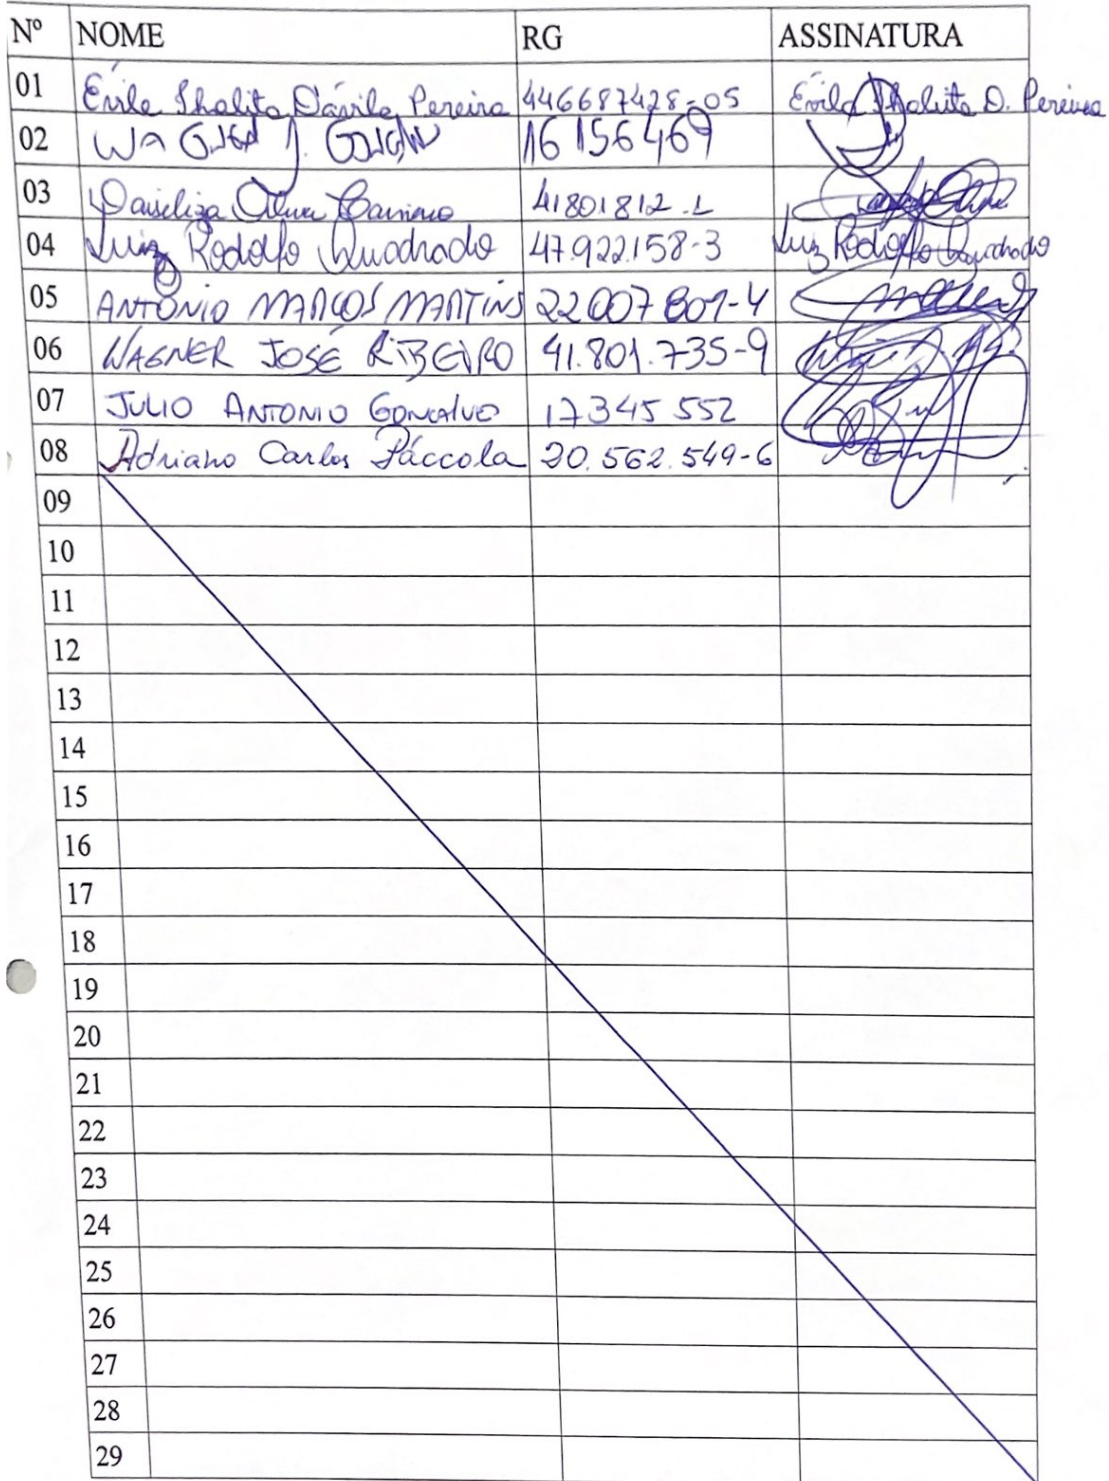 Nº NOME RG ASSINATURA
01 Évile Thalita Dávila Pereira 446687428-05 Évila Thalita D. Pereira
02 WAGNER J. 16 156 469
03 41801812-1
04 Luiz Rodolfo Quadrado 47.922.158-3 Luiz Rodolfo Quadrado
05 ANTÔNIO MARCOS MARTINS 22007801-4
06 WAGNER JOSÉ RIBEIRO 41.801.735-9
07 JULIO ANTONIO GONCALVES 17345 552
08 Adriano Carlos Páccola 20.562.549-6
09
10
11
12
13
14
15
16
17
18
19
20
21
22
23
24
25
26
27
28
29